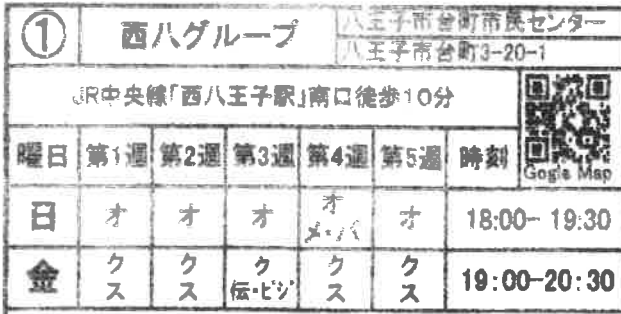 ① 西八グループ
八王子市台町市民センター
八王子市台町3-20-1
JR中央線「西八王子駅」南口徒歩10分
Gogle Map
曜日 第1週 第2週 第3週 第4週 第5週 時刻
日 オ オ オ オ メ・バ オ 18:00-19:30
金 クス クス ク伝・ビジ クス クス 19:00-20:30